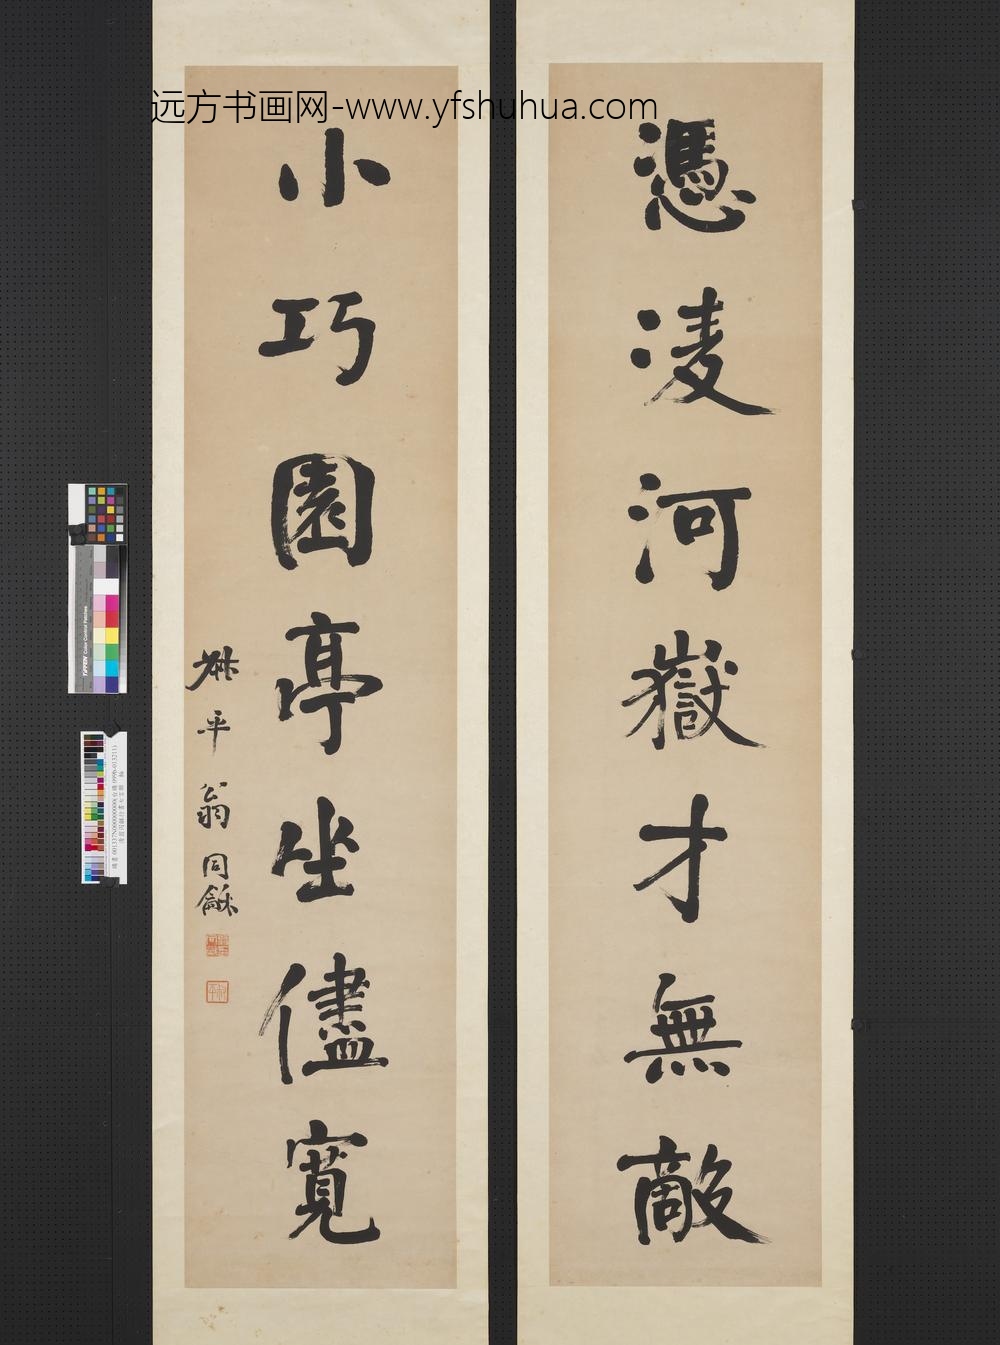 远方书画网-www.yfshuhua.com
憑淩河嶽才無敵
小巧園亭坐儘寬
叔平翁同龢